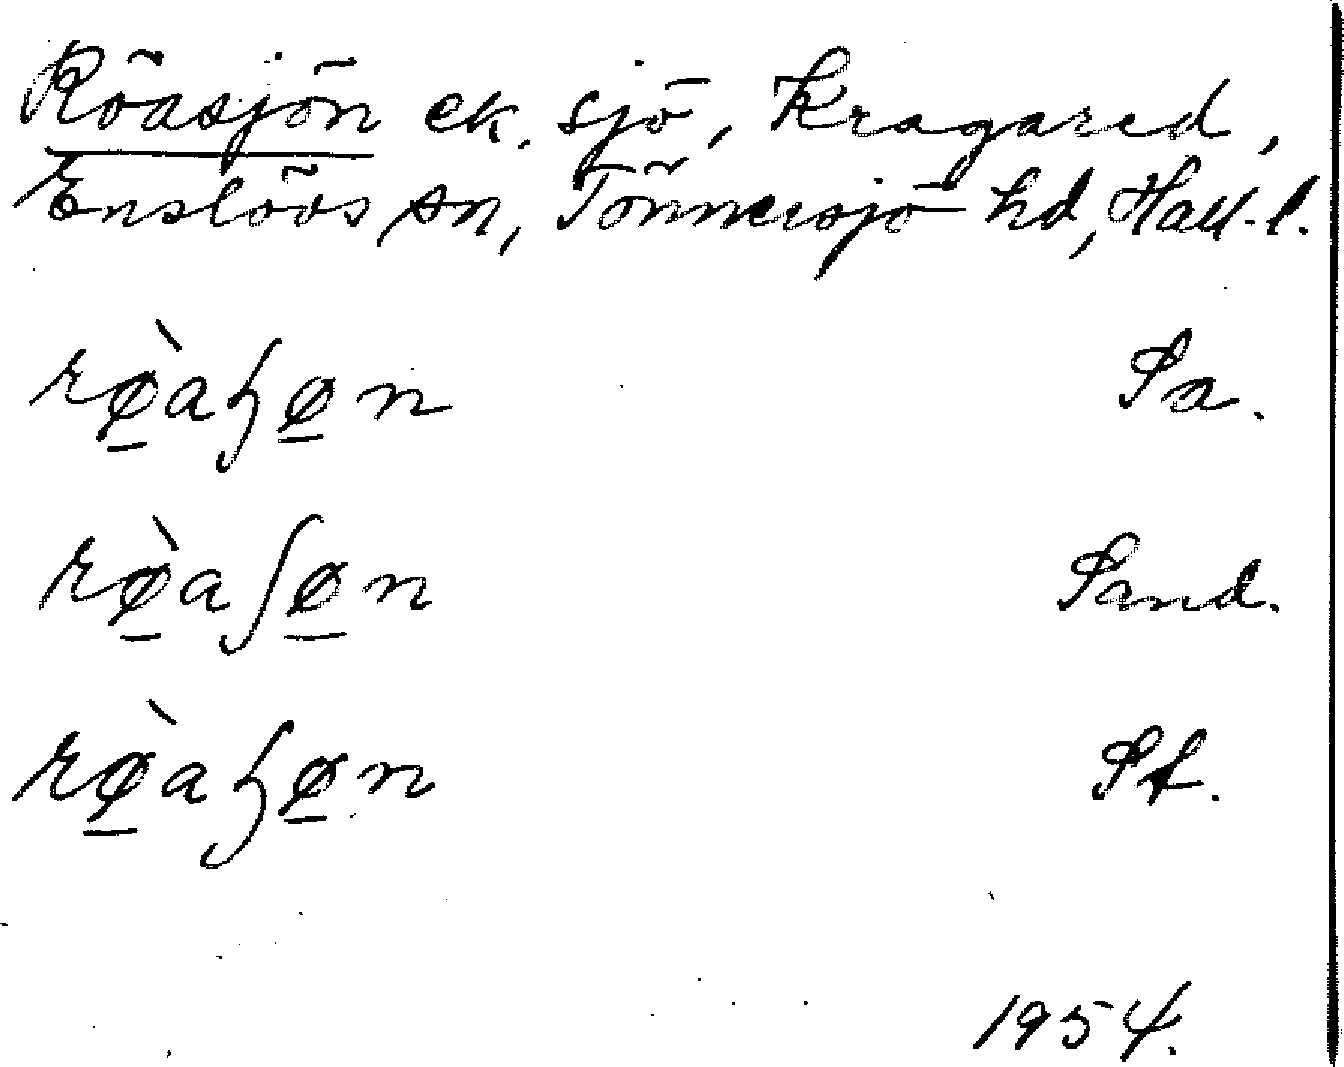 Röasjön ek. sjö, Kragared,
Enslövs sn, Tönnersjö hd, Hall. l.
rø̱̀aɧø̱n Sa.
rø̱̀aʃø̱n Sand.
rø̱̀aɧø̱n St.
1954.